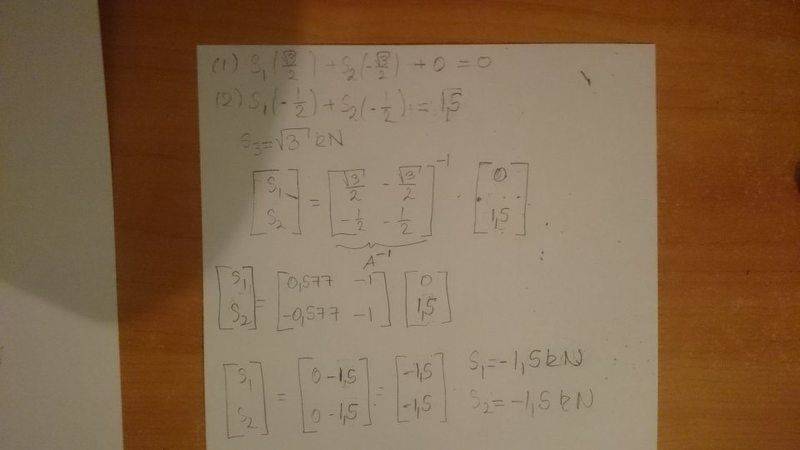 (1) S₁(√3/2) + S₂(-√3/2) + 0 = 0
(2) S₁(-1/2) + S₂(-1/2) = 1,5
S₃ = √3 kN
[S₁ S₂] = [√3/2 -√3/2 -1/2 -1/2]⁻¹ · [0 1,5]
A⁻¹
[S₁ S₂] = [0,577 -1 -0,577 -1] [0 1,5]
[S₁ S₂] = [0-1,5 0-1,5] = [-1,5 -1,5] S₁ = -1,5 kN
S₂ = -1,5 kN